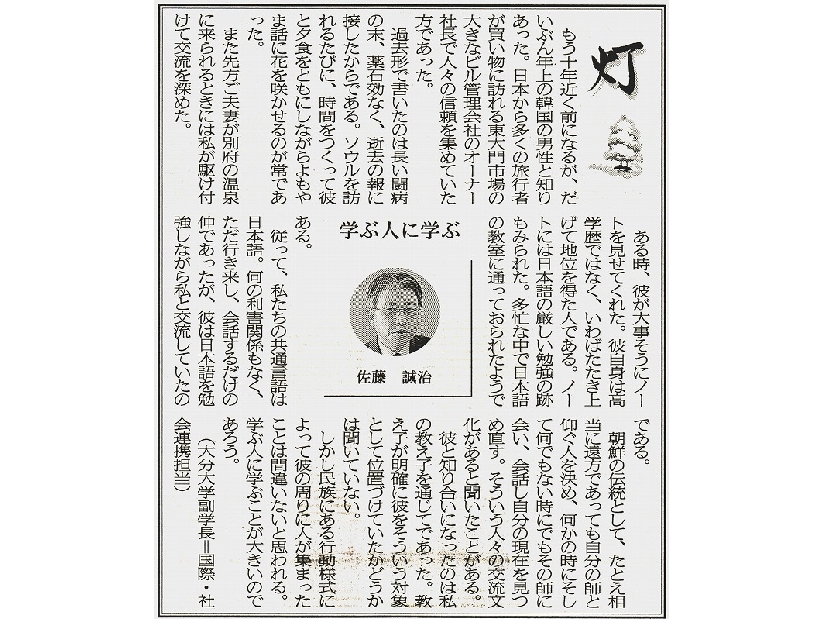 灯
もう十年近く前になるが、だ
いぶん年上の韓国の男性と知り
あった。日本から多くの旅行者
が買い物に訪れる東大門市場の
大きなビル管理会社のオーナー
社長で人々の信頼を集めていた
方であった。
過去形で書いたのは長い闘病
の末、薬石効なく、逝去の報に
接したからである。ソウルを訪
れるたびに、時間をつくって彼
と夕食をともにしながらよもや
ま話に花を咲かせるのが常であ
った。
また先方ご夫妻が別府の温泉
に来られるときには私が駆け付
けて交流を深めた。
学ぶ人に学ぶ
佐藤 誠治
ある時、彼が大事そうにノー
トを見せてくれた。彼自身は高
学歴ではなく、いわばたたき上
げて地位を得た人である。ノー
トには日本語の厳しい勉強の跡
もみられた。多忙な中で日本語
の教室に通っておられたようで
ある。
従って、私たちの共通言語は
日本語。何の利害関係もなく、
ただ行き来し、会話するだけの
仲であったが、彼は日本語を勉
強しながら私と交流していたの
である。
朝鮮の伝統として、たとえ相
当に遠方であっても自分の師と
仰ぐ人を決め、何かの時にそし
て何でもない時にでもその師に
会い、会話し自分の現在を見つ
め直す。そういう人々の交流文
化があると聞いたことがある。
彼と知り合いになったのは私
の教え子を通じてであった。教
え子が明確に彼をそういう対象
として位置づけていたかどうか
は聞いていない。
しかし民族にある行動様式に
よって彼の周りに人が集まった
ことは間違いないと思われる。
学ぶ人に学ぶことが大きいので
あろう。
（大分大学副学長＝国際・社
会連携担当）